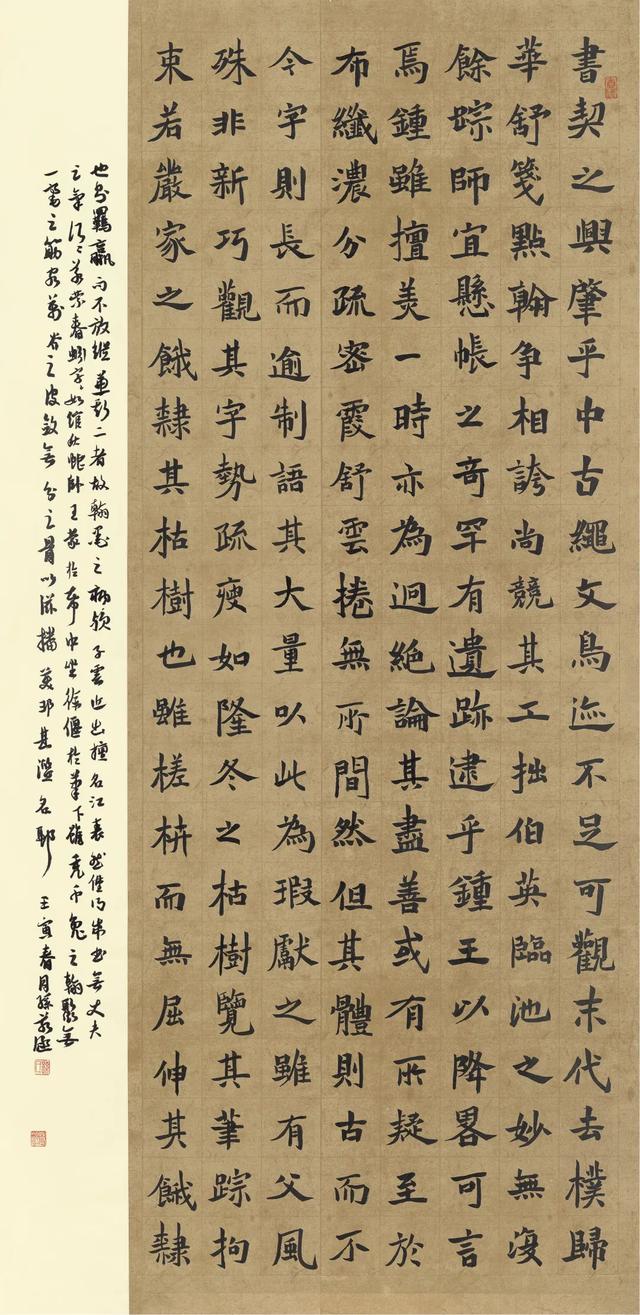 書契之興肇乎中古繩文鳥迹不足可觀末代去樸歸
華舒箋點翰争相誇尚競其工拙伯英臨池之妙無復
餘踪師宜懸帳之奇罕有遺跡逮乎鍾王以降畧可言
焉鍾雖擅美一時亦為迥絕論其盡善或有所疑至於
布纖濃分疏密霞舒雲捲無所間然但其體則古而不
今字則長而逾制語其大量以此為瑕獻之雖有父風
殊非新巧觀其字勢疏瘦如隆冬之枯樹覽其筆踪拘
束若嚴家之餓隸其枯樹也雖槎枿而無屈伸其餓隸
也則羈羸而不放縱兼斯二者故翰墨之病歟子雲近出擅名江表然僅得成書無丈夫
之氣行行若縈春蚓字字如綰秋蛇卧王蒙於帋中坐徐偃於筆下雖禿千兔之翰聚無
一毫之筋窮萬谷之皮斂無半分之骨以茲播美邪其濫名耶 壬寅春月孫